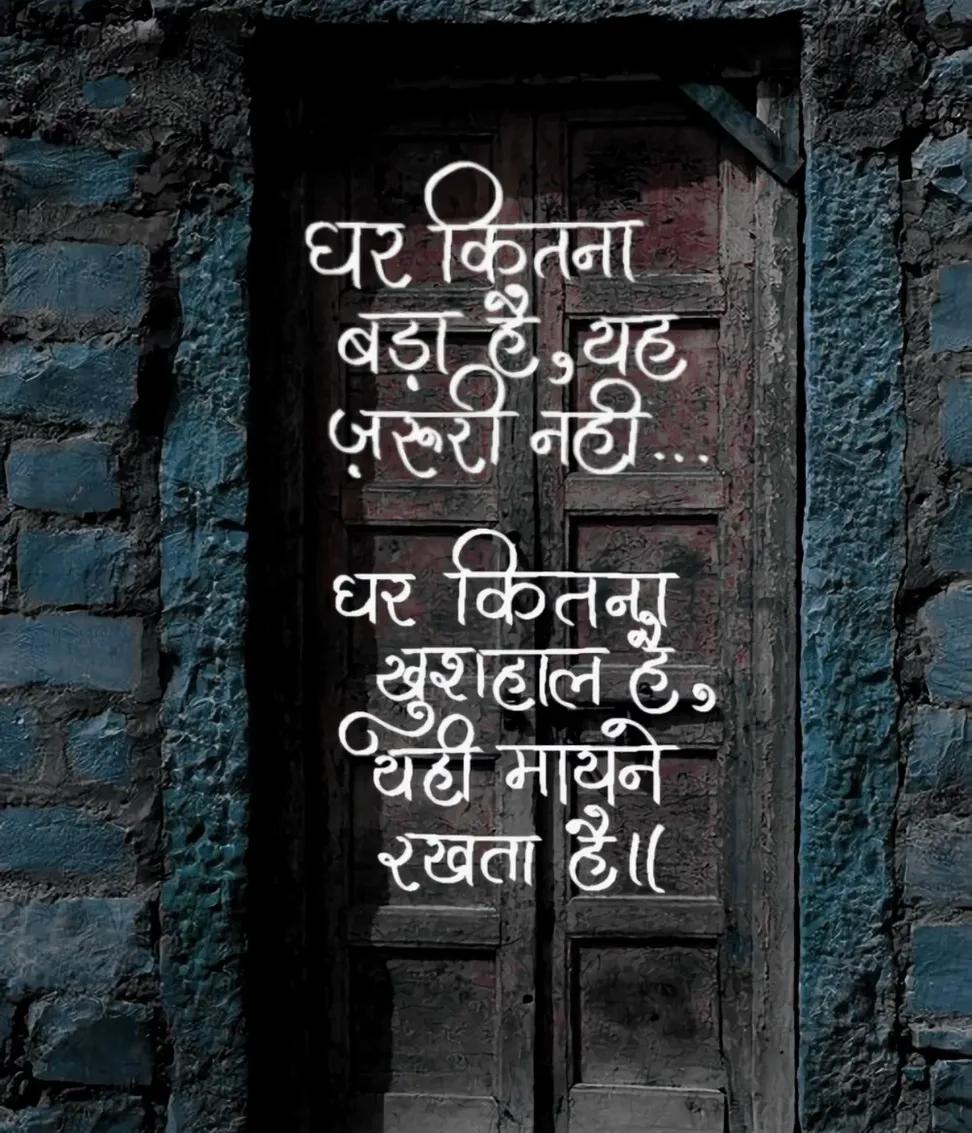 घर कितना
बड़ा है, यह
ज़रूरी नही...
घर कितना
खुशहाल है,
यही मायने
रखता है॥